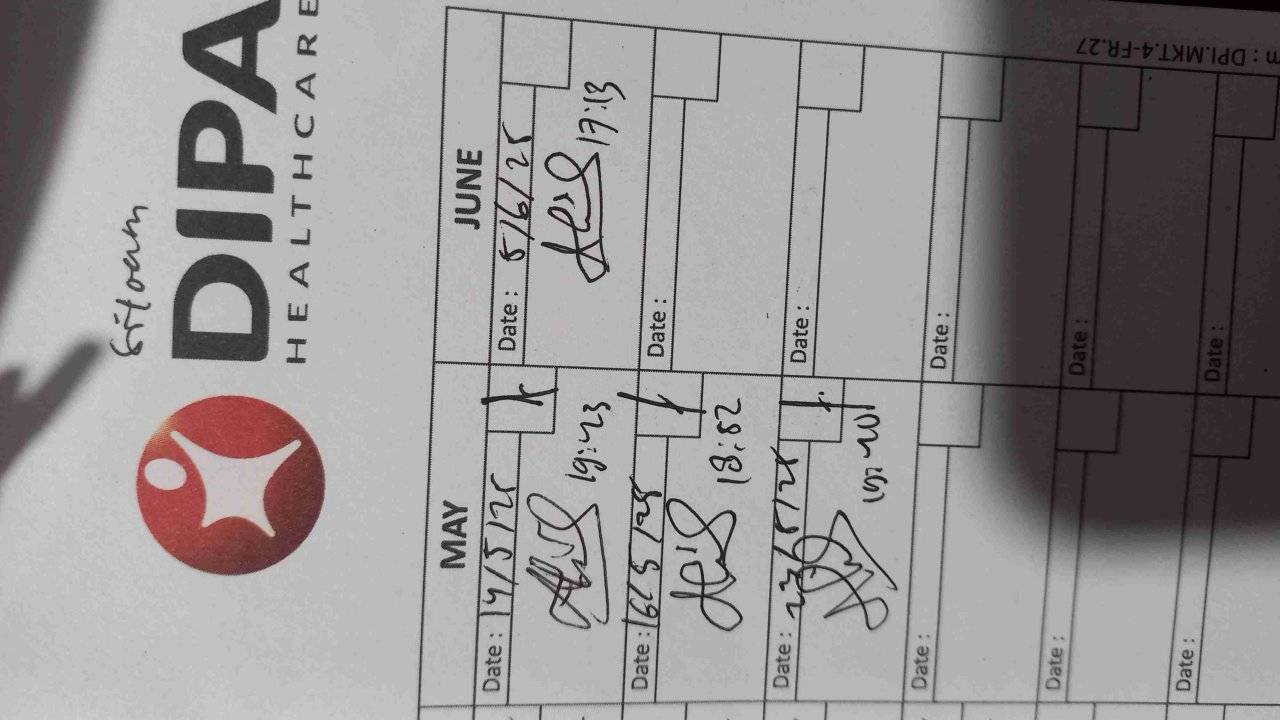 DIPA
HEALTHCARE
MAY
Date : 14/5/25
19:23
Date : 16/5/25
18:52
Date : 23/5/25
Date :
Date :
Date :
JUNE
Date : 5/6/25
17:13
Date :
Date :
Date :
Date :
Date :
: DPI.MKT.4-FR.27